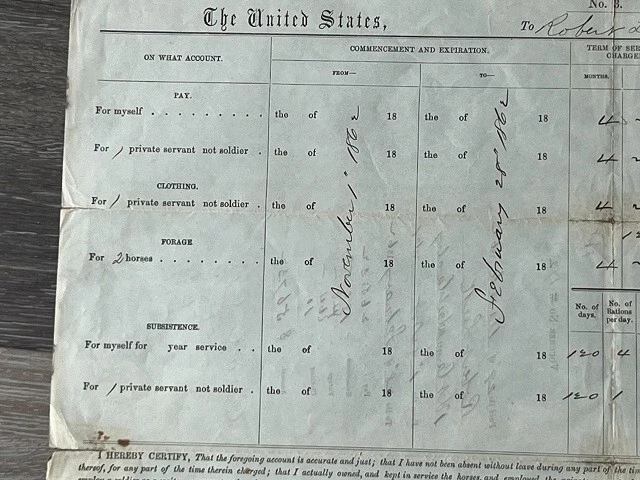 No. 3.
The United States,
To Robert
ON WHAT ACCOUNT.
COMMENCEMENT AND EXPIRATION.
TERM OF SER
CHARGE
FROM—
TO—
MONTHS.
PAY.
For myself . . . . . . . . the of 18 the of 18 4
For 1 private servant not soldier . the of 18 the of 18 4
CLOTHING.
For 1 private servant not soldier . the of 18 the of 18 4
FORAGE
For 2 horses . . . . . . . the of 18 the of 18 4
November 1st 1862
February 28th 1862
No. of days.
No. of Rations per day.
SUBSISTENCE.
For myself for year service . . the of 18 the of 18 120 4
For 1 private servant not soldier . the of 18 the of 18 120 1
I HEREBY CERTIFY, That the foregoing account is accurate and just; that I have not been absent without leave during any part of the tim
thereof, for any part of the time therein charged; that I actually owned, and kept in service the horses and employed the